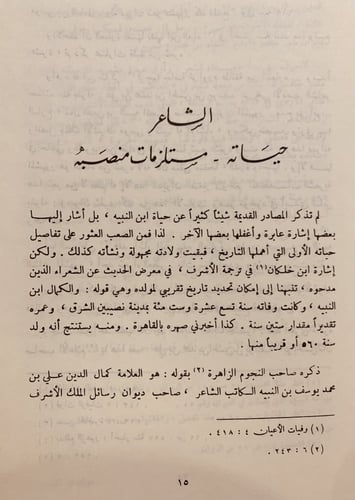 الشاعر
حياته - مستلزمات منصبه
لم تذكر المصادر القديمة شيئاً كثيراً عن حياة ابن النبيه ، بل أشار إليها
بعضها إشارة عابرة وأغفلها بعضها الآخر . لذا فمن الصعب العثور على تفاصيل
حياته الأولى التي أهملها التاريخ ، فبقيت ولادته مجهولة ونشأته كذلك . ولكن
إشارة ابن خلكان (١) في ترجمة الأشرف ، في معرض الحديث عن الشعراء الذين
مدحوه ، تنبهنا إلى إمكان تحديد تاريخ تقريبي لمولده وهي قوله : والكمال ابن
النبيه ، وكانت وفاته سنة تسع عشرة وست مئة بمدينة نصيبين الشرق ، وعمره
تقديراً مقدار ستين سنة . كذا أخبرني صهره بالقاهرة . ومنه يستنتج أنه ولد
سنة ٥٦٠ أو قريباً منها .
ذكره صاحب النجوم الزاهرة (٢) بقوله : هو العلامة كمال الدين علي بن
محمد يوسف بن النبيه الكاتب الشاعر ، صاحب ديوان رسائل الملك الأشرف
(١) وفيات الأعيان ٤ : ٤١٨ .
(٢) ٦ : ٢٤٣ .
١٥